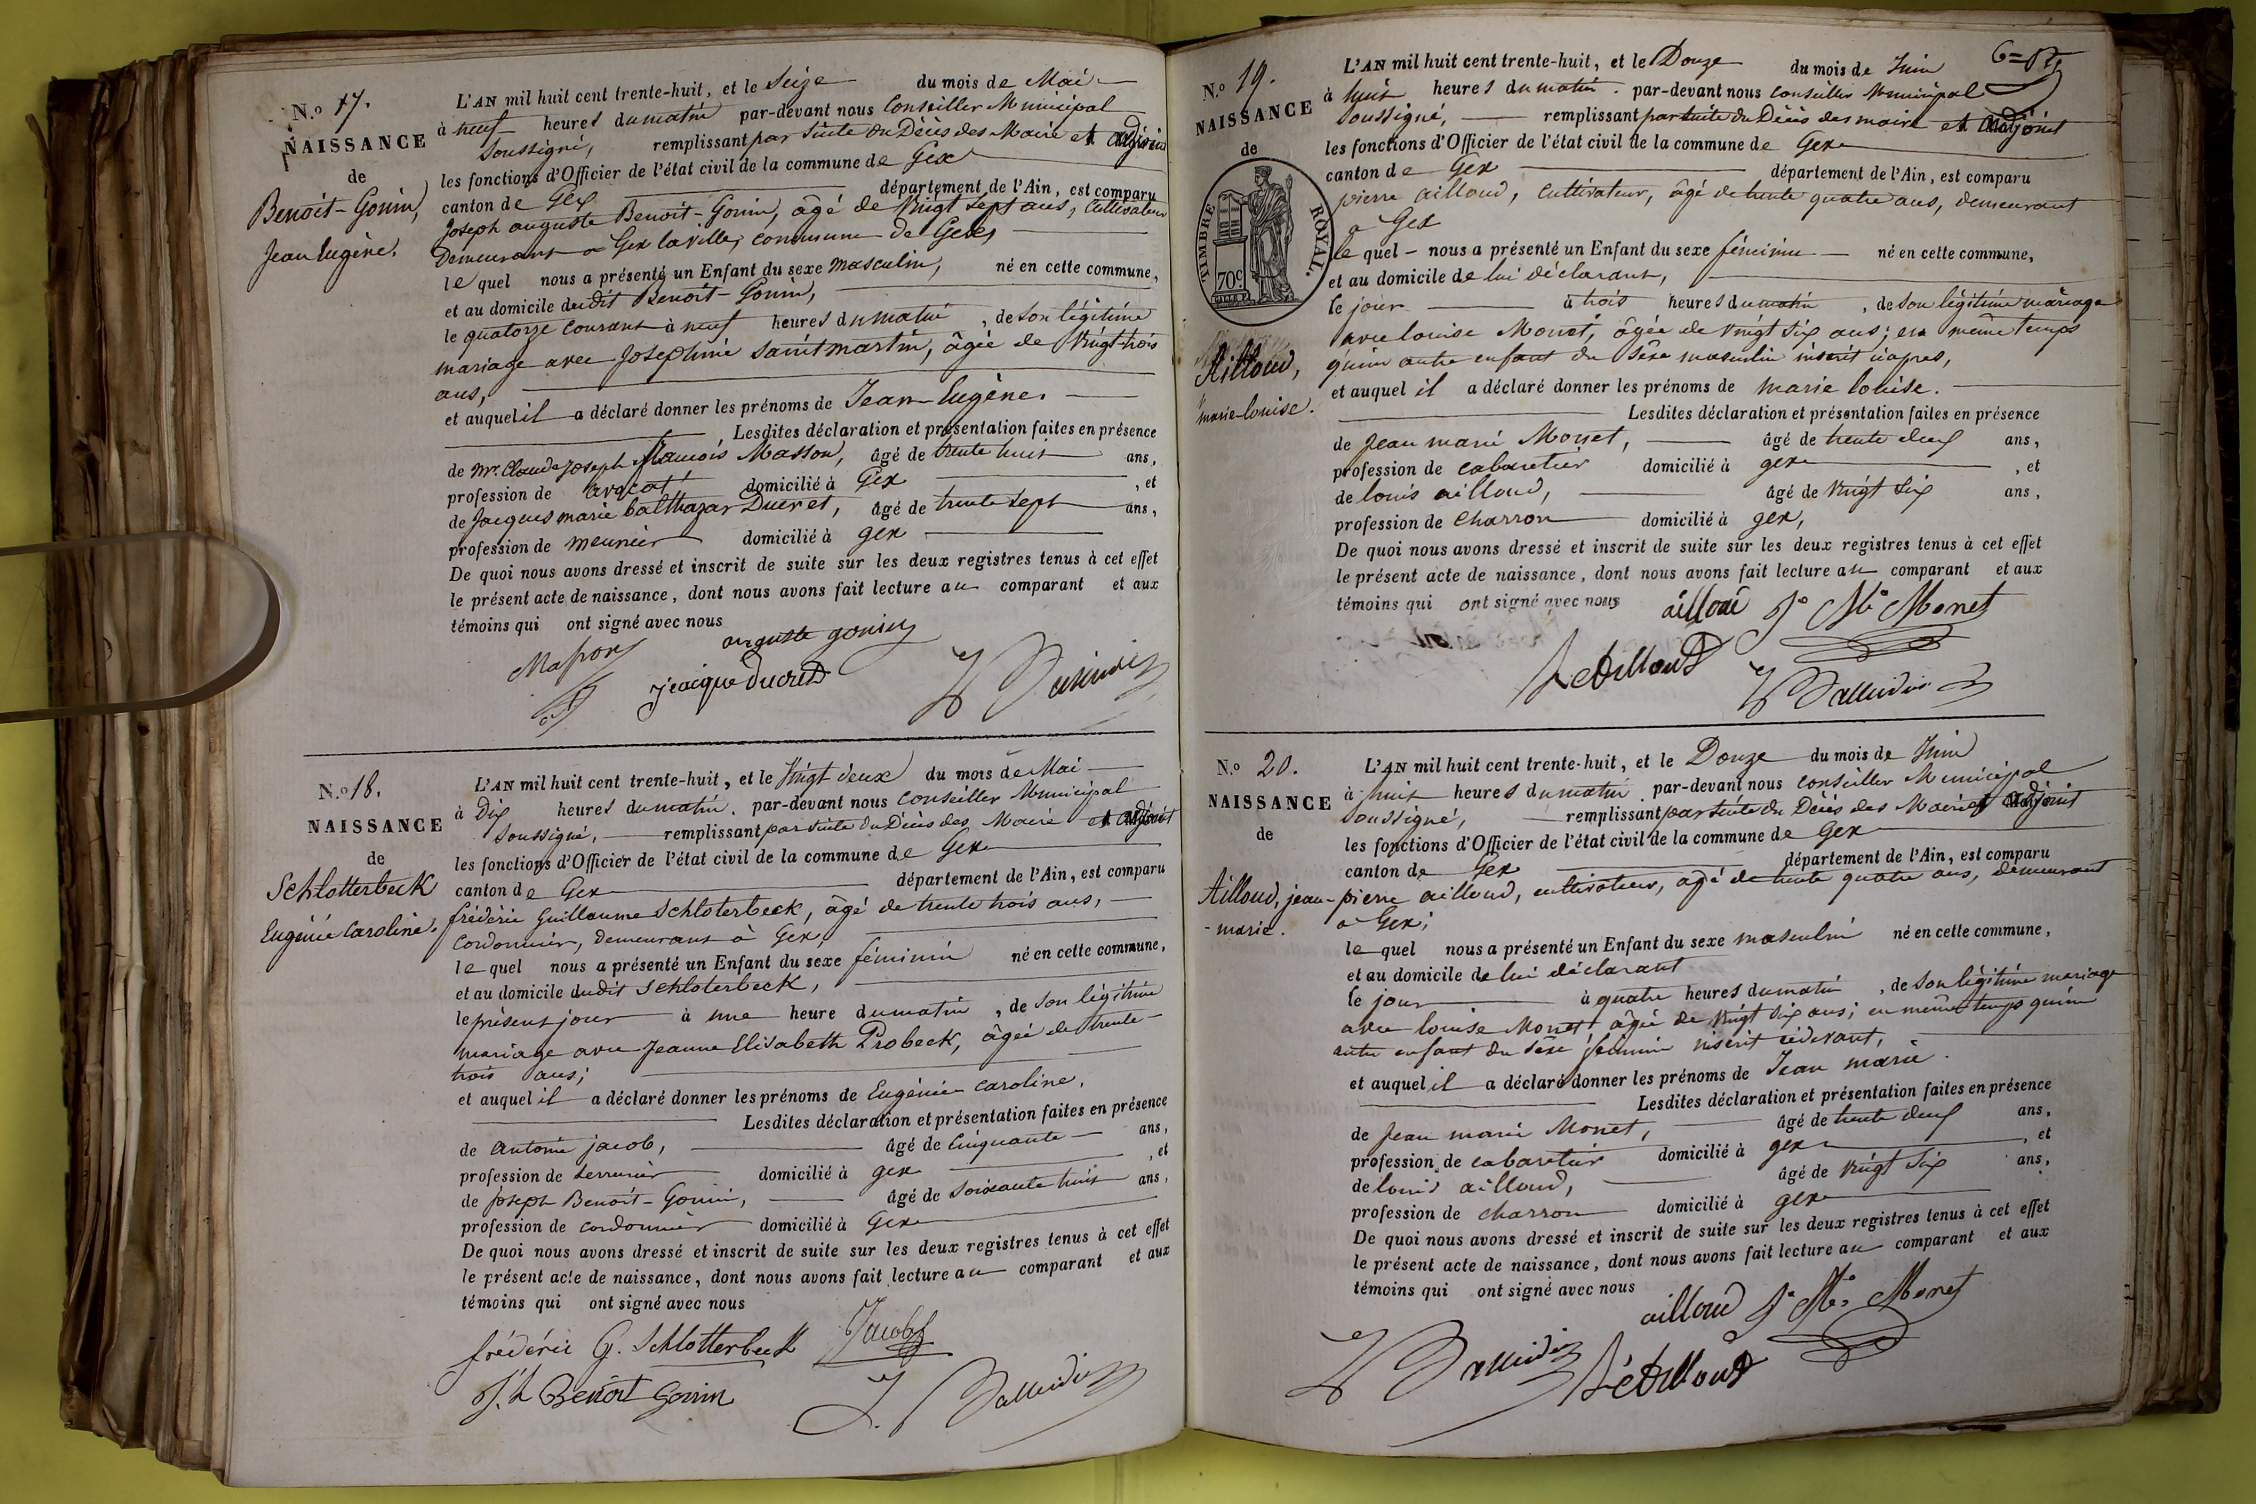 N.o 17.
NAISSANCE
de
Benoit-Gonin,
Jean Eugène.
L'AN mil huit cent trente-huit, et le Seize du mois de Mai
à neuf heures du matin par-devant nous Conseiller Municipal
Soussigné, remplissant par suite du Décès des Maire et adjoint
les fonctions d'Officier de l'état civil de la commune de Gex
canton de Gex département de l'Ain, est comparu
Joseph auguste Benoit-Gonin, âgé de vingt sept ans, Cultivateur
Demeurant à Gex la ville, commune de Gex,
le quel nous a présenté un Enfant du sexe masculin, né en cette commune,
et au domicile dudit Benoit-Gonin,
le quatorze courant à neuf heures du matin, de son légitime
mariage avec Josephine Saintmartin, âgée de Vingt-trois
ans,
et auquel il a déclaré donner les prénoms de Jean-Eugène.
Lesdites déclaration et présentation faites en présence
de Mr. Claude Joseph François Masson, âgé de trente huit ans,
profession de avocat domicilié à Gex, et
de Jacques marie balthazar Ducret, âgé de trente sept ans,
profession de meunier domicilié à gex
De quoi nous avons dressé et inscrit de suite sur les deux registres tenus à cet effet
le présent acte de naissance, dont nous avons fait lecture au comparant et aux
témoins qui ont signé avec nous
Masson auguste gonin
jacque Ducret
N.o 18.
NAISSANCE
de
Schlotterbeck
Eugénie Caroline.
L'AN mil huit cent trente-huit, et le Vingt deux du mois de Mai
à Dix heures du matin. par-devant nous Conseiller Municipal
Soussigné, remplissant par suite du Décès des Maire et adjoint
les fonctions d'Officier de l'état civil de la commune de Gex
canton de Gex département de l'Ain, est comparu
frédéric Guillaume Schloterbeck, âgé de trente trois ans,
Cordonnier, demeurant à Gex,
le quel nous a présenté un Enfant du sexe féminin né en cette commune,
et au domicile dudit Schloterbeck,
le présent jour à une heure du matin, de son légitime
mariage avec Jeanne Elisabeth Probeck, âgée de trente
trois ans;
et auquel il a déclaré donner les prénoms de Eugénie Caroline.
Lesdites déclaration et présentation faites en présence
de antoine jacob, âgé de Cinquante ans,
profession de serrurier domicilié à gex, et
de Joseph Benoit-Gonin, âgé de soixante huit ans,
profession de cordonnier domicilié à Gex
De quoi nous avons dressé et inscrit de suite sur les deux registres tenus à cet effet
le présent acte de naissance, dont nous avons fait lecture au comparant et aux
témoins qui ont signé avec nous
frédéric G. Schlotterbeck Jacob
J.h Benoit Gonin
N.o 19.
NAISSANCE
de
TIMBRE ROYAL.
70c
Ailloud,
marie-louise.
L'AN mil huit cent trente-huit, et le Douze du mois de Juin
à huit heures du matin. par-devant nous Conseiller Municipal
Soussigné, remplissant par suite du Décès des maire et adjoint
les fonctions d'Officier de l'état civil de la commune de Gex
canton de Gex département de l'Ain, est comparu
pierre ailloud, cultivateur, âgé de trente quatre ans, demeurant
à Gex
le quel nous a présenté un Enfant du sexe féminin né en cette commune,
et au domicile de lui déclarant,
le jour à trois heures du matin, de son légitime mariage
avec louise Monet, âgée de vingt six ans; en même temps
qu'un autre enfant du sexe masculin inscrit ciaprès,
et auquel il a déclaré donner les prénoms de marie louise.
Lesdites déclaration et présentation faites en présence
de Jean marie Monet, âgé de trente deux ans,
profession de cabaretier domicilié à gex, et
de louis ailloud, âgé de vingt six ans,
profession de Charron domicilié à gex,
De quoi nous avons dressé et inscrit de suite sur les deux registres tenus à cet effet
le présent acte de naissance, dont nous avons fait lecture au comparant et aux
témoins qui ont signé avec nous ailloud J. Me Monet
N.o 20.
NAISSANCE
de
Ailloud, jean-
-marie.
L'AN mil huit cent trente-huit, et le Douze du mois de Juin
à huit heures du matin par-devant nous Conseiller Municipal
Soussigné, remplissant par suite du Décès des Maire et adjoint
les fonctions d'Officier de l'état civil de la commune de Gex
canton de Gex département de l'Ain, est comparu
pierre ailloud, cultivateur, âgé de trente quatre ans, demeurant
à Gex;
le quel nous a présenté un Enfant du sexe masculin né en cette commune,
et au domicile de lui déclarant
le jour à quatre heures du matin, de son légitime mariage
avec louise Monet âgée de vingt six ans; en même temps qu'un
autre enfant du sexe féminin inscrit cidevant,
et auquel il a déclaré donner les prénoms de Jean marie.
Lesdites déclaration et présentation faites en présence
de Jean marie Monet, âgé de trente deux ans,
profession de cabaretier domicilié à gex, et
de louis ailloud, âgé de vingt six ans,
profession de charron domicilié à gex
De quoi nous avons dressé et inscrit de suite sur les deux registres tenus à cet effet
le présent acte de naissance, dont nous avons fait lecture au comparant et aux
témoins qui ont signé avec nous
ailloud J. Me Monet